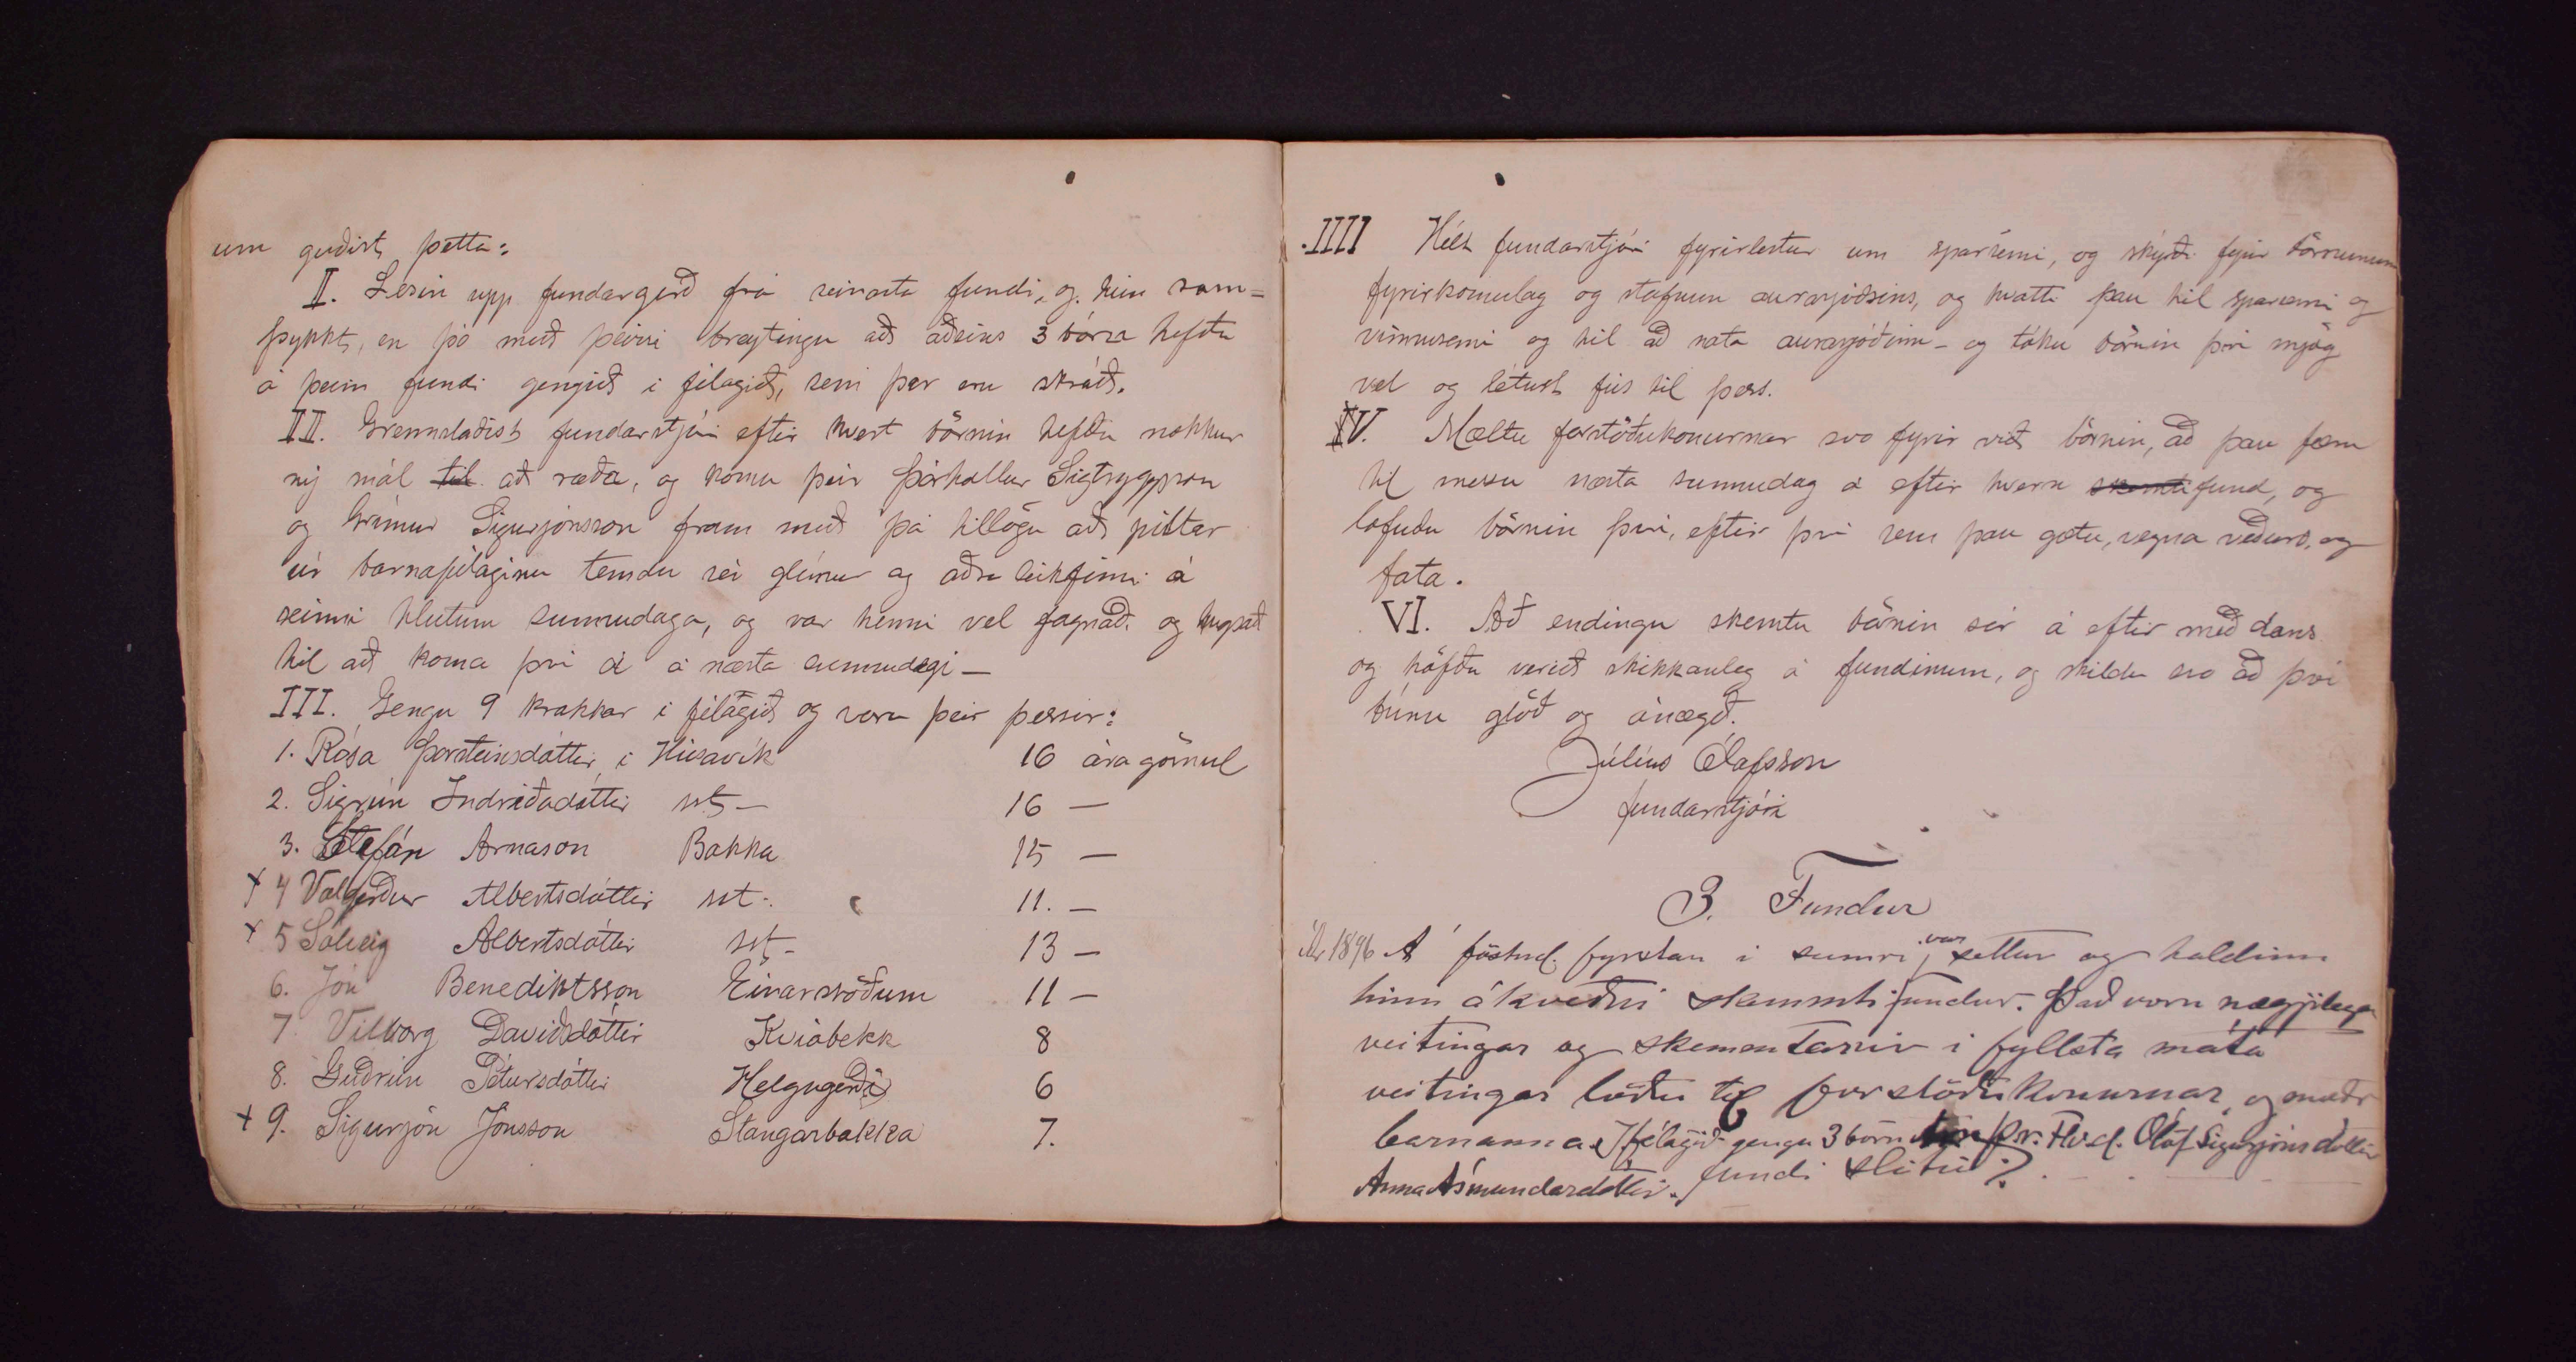 um gerðist þetta:
II. Lesin upp fundargerð frá seinasta fundi, og hún sam=
þykkt, en þó með þeirri breytingu að aðeins 3 börn hefðu
á þeim fundi gengið í félagið, sem þar eru skráð.
II. Grennslaðist fundarstjóri eftir hvert börnin hefðu nokkur
ný mál til að ræða, og komu þeir Þórhallur Sigtryggsson
og Grímur Sigurjónsson fram með þá tillögu að piltar
úr barnafélaginu temdu sér glímur og aðra leikfimi á
seinni hlutum sunnudaga, og var henni vel fagnað og hugsað
til að koma því á á næsta sunnudegi –
III. Gengu 9 krakkar í félagið og voru þeir þessir:
1. Rósa Þorsteinsdóttir í Húsavík 16 ára gömul
2. Sigrún Indriðadóttir st – 16 –
3. Stefán Arnason Bakka 15 –
+ 4 Valgerður Albertsdóttir st. 11. –
+ 5 Sólveig Albertsdóttir st – 13 –
6. Jón Benediktsson Einarsstöðum 11 –
7. Vilborg Davíðsdóttir Kviabekk 8
8. Guðrún Pétursdóttir Helgugerði 6
+ 9. Sigurjón Jónsson Stangarbakka 7.
IIII Hélt fundarstjóri fyrirlestur um sparsemi, og skýrði fyrir börnunum
fyrirkomulag og stofnun aurasjóðsins, og hvatti þau til sparsemi og
vinnusemi og til að nota aurasjóðinn – og tóku börnin því mjög
vel og létust fús til þess.
IV. Mæltu forstöðukonurnar svo fyrir við börnin, að þau færu
til messu næsta sunnudag á eftir hvern skemtifund, og
lofuðu börnin því, eftir því sem þau gætu, vegna veðurs, og
fata.
VI. Að endingu skemtu börnin sér á eftir með dans
og höfðu verið skikkanleg á fundinum, og skildu svo að því
búnu glöð og ánægð.
Júlíus Ólafsson
fundarstjóri
3. Fundur
Ár 1896 Á föstud. fyrstan í sumri, var settur og haldinn
hinn ákveðni skemmtifundur. Það voru nægjilegar
veitingar og skementanir í fyllsta máta
veitingar lögðu til forstöðukonurnar og mæðr
barnanna. I félagið gengu 3 börn Ólöf Sigurjónsdóttir
Anna Ásmundardóttir. fundi slitið.